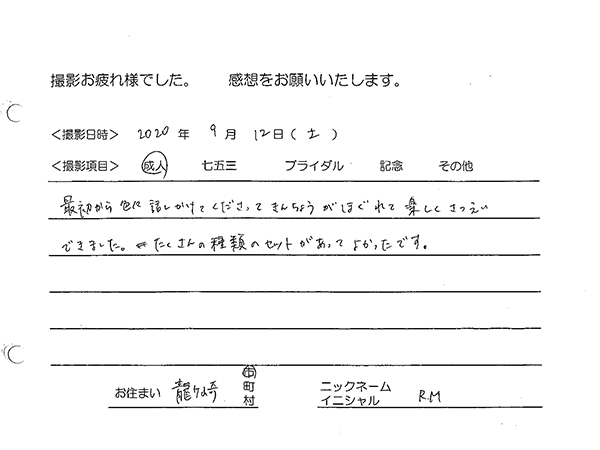 撮影お疲れ様でした。 感想をお願いいたします。
<撮影日時> 2020 年 9 月 12日(土)
<撮影項目> 成人 七五三 ブライダル 記念 その他
最初から色々話しかけてくださってきんちょうがほぐれて楽しくさつえい
できました。たくさんの種類のセットがあってよかったです。
お住まい 龍ヶ崎 市町村
ニックネーム
イニシャル R.M